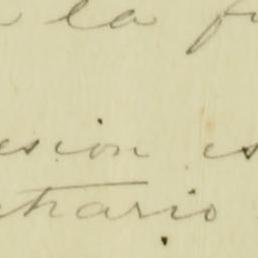 la f
esion es
trario